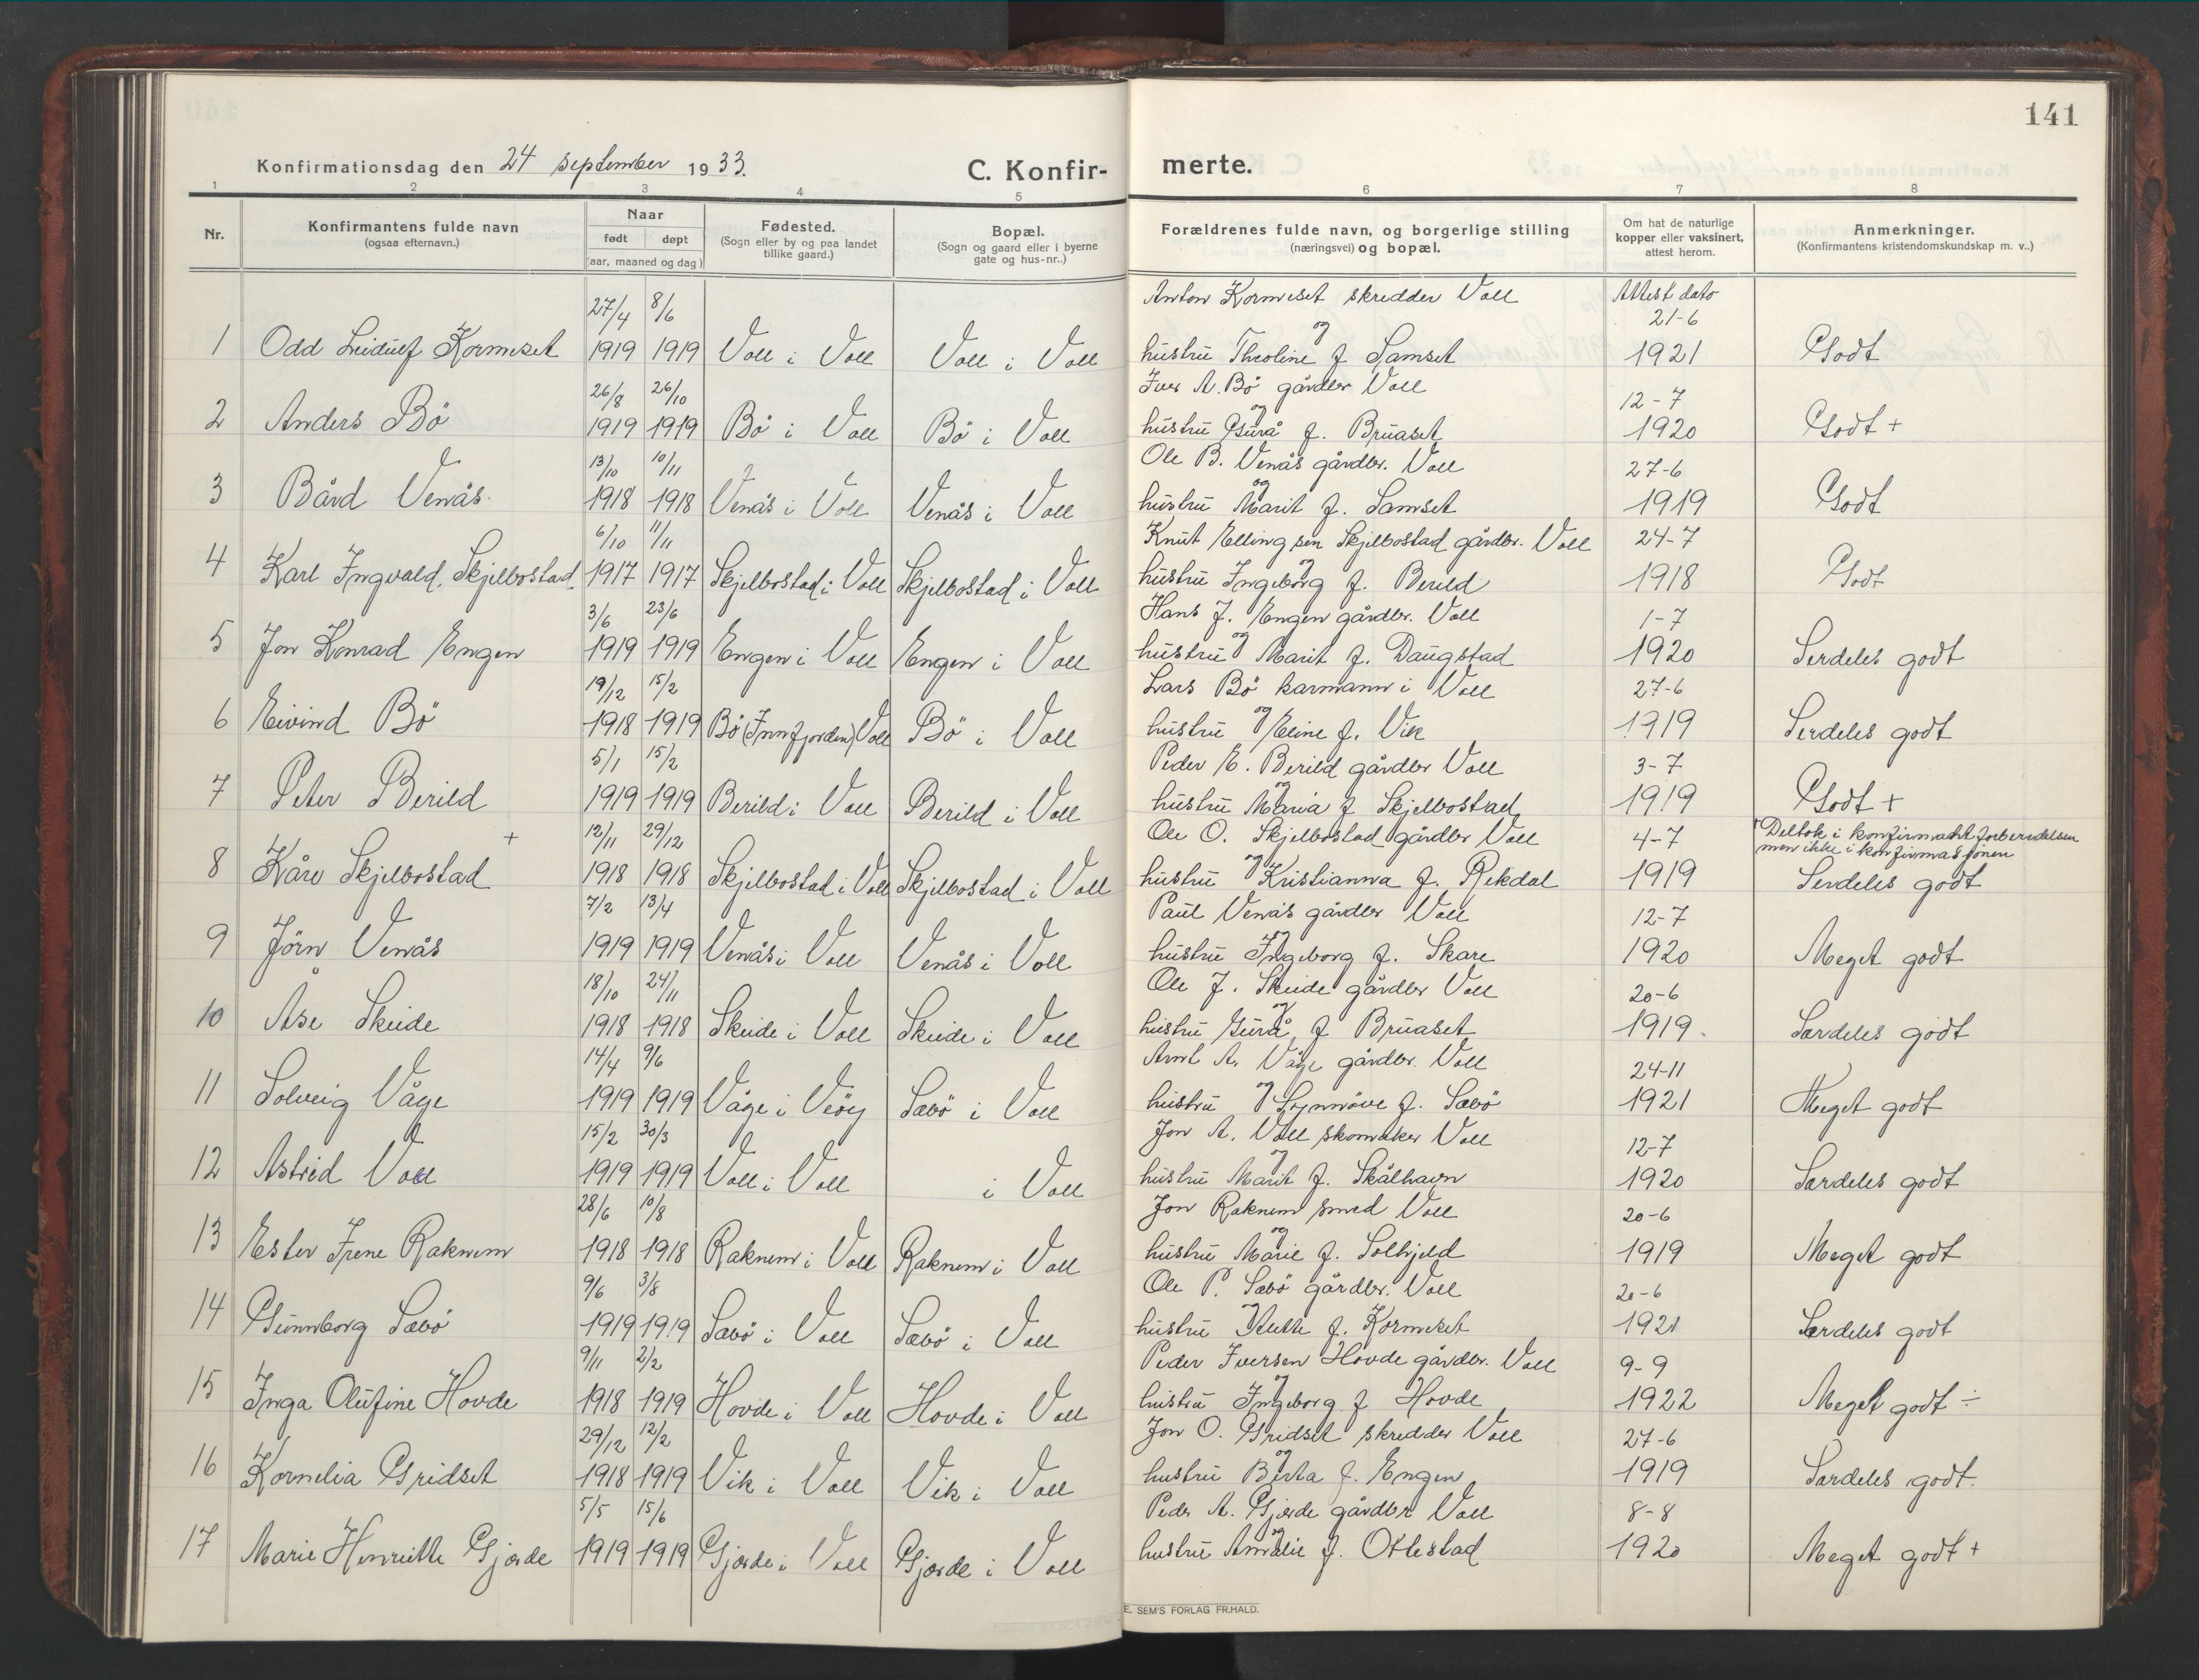 141
Konfirmationsdag den 24 september 1933.
C. Konfirmerte.
1 2 3 4 5 6 7 8
Nr.
Konfirmantens fulde navn
(ogsaa efternavn.)
Naar
født døpt
(aar, maaned og dag)
Fødested.
(Sogn eller by og paa landet
tillike gaard.)
Bopæl.
(Sogn og gaard eller i byerne
gate og hus-nr..)
Forældrenes fulde navn, og borgerlige stilling
(næringsvei) og bopæl.
Om hat de naturlige
kopper eller vaksinert,
attest herom.
Anmerkninger.
(Konfirmantens kristendomskundskap m. v..)
27/4 8/6 Anton Kormeset skredder Voll Attest dato 21-6
1 Odd Leidulf Kormeset 1919 1919 Voll i Voll Voll i Voll og hustru Theoline f Samset 1921 Godt
26/8 26/10 Iver A. Bö gårdbr Voll 12-7
2 Anders Bö 1919 1919 Bö i Voll Bö i Voll og hustru Gurå f. Bruaset 1920 Godt +
13/10 10/11 Ole B. Venås gårdbr. Voll 27-6
3 Bård Venås 1918 1918 Venås i Voll Venås i Voll og hustru Marit f. Samset 1919 Godt
6/10 11/11 Knut Ellingsen Skjelbostad gårdbr. Voll 24-7
4 Karl Ingvald Skjelbostad 1917 1917 Skjelbostad i Voll Skjelbostad i Voll og hustru Ingeborg f. Berild 1918 Godt
3/6 23/6 Hans J. Engen gårdbr. Voll 1-7
5 Jon Konrad Engen 1919 1919 Engen i Voll Engen i Voll og hustru Marit f. Daugstad 1920 Serdeles godt
19/12 15/2 Lars Bö karmann i Voll 27-6
6 Eivind Bö 1918 1919 Bö (Innfjorden) Voll Bö i Voll og hustru Eline f. Vik 1919 Serdeles godt
5/1 15/2 Peder E. Berild gårdbr Voll 3-7
7 Peter Berild 1919 1919 Berild i Voll Berild i Voll og hustru Maria f Skjelbostad 1919 Godt +
+ 12/11 29/12 Ole O. Skjelbostad gårdbr Voll 4-7 + Deltok i konfirmant forberedelsen
men ikke i konfirmasjonen
8 Kåre Skjelbostad 1918 1918 Skjelbostad i Voll Skjelbostad i Voll og hustru Kristianna f. Rekdal 1919 Serdeles godt
7/2 13/4 Paul Venås gårdbr Voll 12-7
9 Jörn Venås 1919 1919 Venås i Voll Venås i Voll og hustru Ingeborg f. Skare 1920 Meget godt
18/10 24/11 Ole J. Skeide gårdbr Voll 20-6
10 Åse Skeide 1918 1918 Skeide i Voll Skeide i Voll og hustru Gurå f Bruaset 1919. Særdeles godt
14/4 9/6 Arnt A. Våge gårdbr. Voll 24-11
11 Solveig Våge 1919 1919 Våge i Veöy Sæbö i Voll og hustru Synnöve f. Sæbö 1921 Meget godt
15/2 30/3 Jon A. Voll skomaker Voll 12-7
12 Astrid Voll 1919 1919 Voll i Voll i Voll og hustru Marit f. Skålhavn 1920 Særdeles godt
28/6 10/8 Jon Raknem smed Voll 20-6
13 Ester Irene Raknem 1918 1918 Raknem i Voll Raknem i Voll og hustru Marie f. Solhjeld 1919 Meget godt
9/6 3/8 Ole P. Sæbö gårdbr. Voll 20-6
14 Gunnborg Sæbö 1919 1919 Sæbö i Voll Sæbö i Voll og hustru f. Kormeset 1921 Særdeles godt
9/11 2/2 Peder Iversen Hovde gårdbr. Voll 9-9
15 Inga Olufine Hovde 1918 1919 Hovde i Voll Hovde i Voll og hustru Ingeborg f Hovde 1922 Meget godt ÷
29/12 12/2 Jon O. Gridset skredder Voll 27-6
16 Kornelia Gridset 1918 1919 Vik i Voll Vik i Voll og hustru Berta f. Engen 1919 Særdeles godt.
5/5 15/6 Peder A. Gjærde gårdbr Voll 8-8
17 Marie Henriette Gjærde 1919 1919 Gjærde i Voll Gjærde i Voll og hustru Amalie f. Ottestad 1920 Meget godt +
E. SEM'S FORLAG FR.HALD.